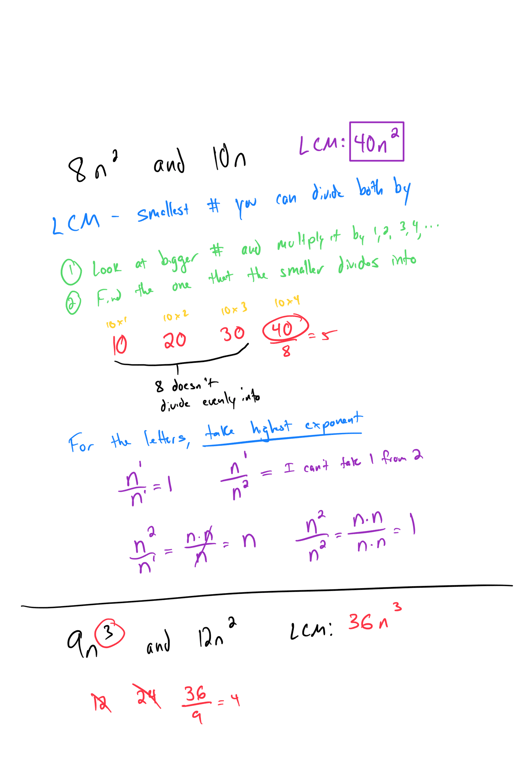 8n² and 10n LCM: 40n²
LCM - smallest # you can divide both by
① Look at bigger # and multiply it by 1, 2, 3, 4, ...
② Find the one that the smaller divides into
10x1 10x2 10x3 10x4
10 20 30 40/8 = 5
8 doesn't
divide evenly into
For the letters, take highest exponent
n¹/n¹ = 1 n¹/n² = I can't take 1 from 2
n²/n¹ = n·n/n = n n²/n² = n·n/n·n = 1
9n³ and 12n² LCM: 36n³
12 24 36/9 = 4